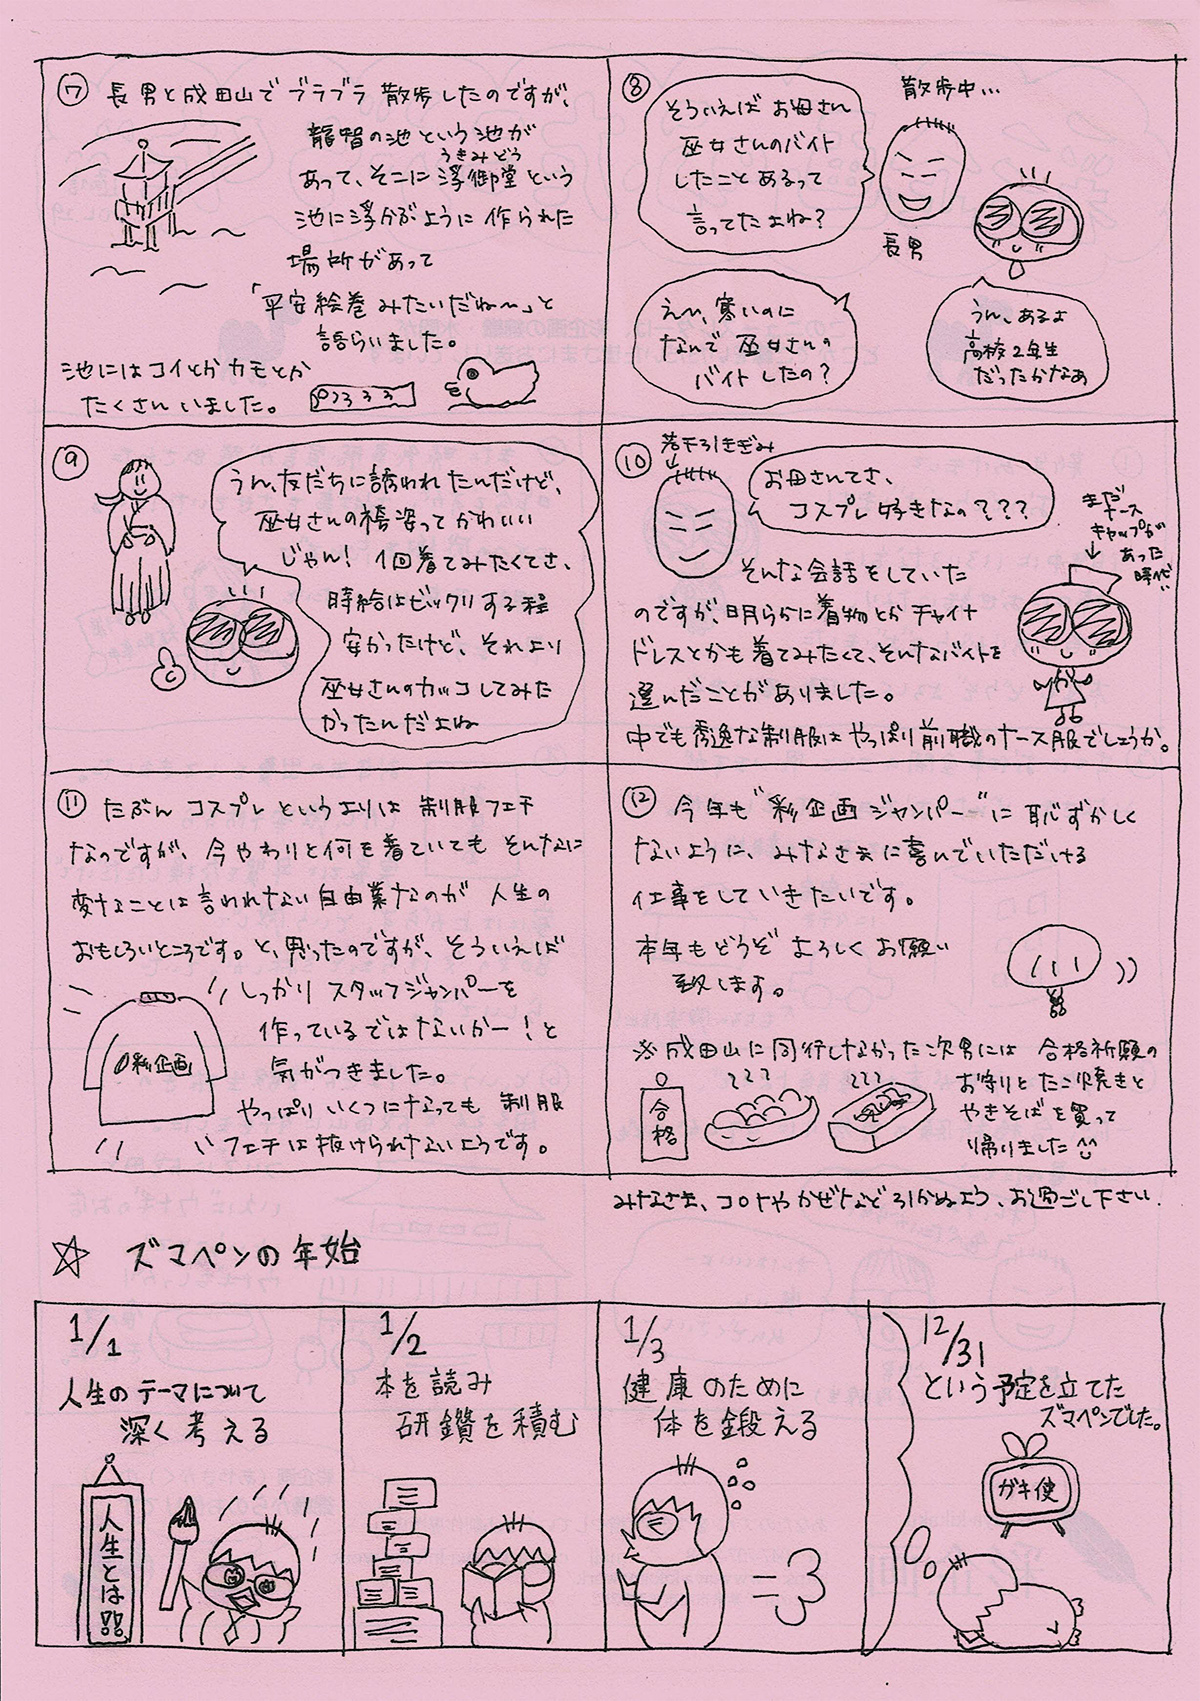 ⑦ 長男と成田山でブラブラ散歩したのですが、
龍智の池という池が
うきみどう
あって、そこに浮御堂という
池に浮かぶように作られた
場所があって
「平安絵巻みたいだね〜」と
語らいました。
池にはコイとかカモとか
たくさんいました。
⑧ 散歩中…
そういえばお母さん
巫女さんのバイト
したことあるって
言ってたよね?
長男
うん、あるよ
高校2年生
だったかなぁ
えー、寒いのに
なんで巫女さんの
バイトしたの?
⑨
うん、友だちに誘われたんだけど、
巫女さんの袴姿ってかわいい
じゃん! 1回着てみたくてさ、
時給はビックリする程
安かったけど、それより
巫女さんのカッコしてみた
かったんだよね
⑩ 若干引きぎみ
お母さんてさ、
コスプレ好きなの???
まだ
ナース
キャップが
あった
時代
そんな会話をしていた
のですが、明らかに着物とかチャイナ
ドレスとかも着てみたくて、そんなバイトを
選んだことがありました。
中でも秀逸な制服はやっぱり前職のナース服でしょうか。
⑪ たぶんコスプレというよりは制服フェチ
なのですが、今やわりと何を着ていてもそんなに
変なことは言われない自由業なのが人生の
おもしろいところです。と、思ったのですが、そういえば
しっかりスタッフジャンパーを
作っているではないかー!と
気がつきました。
やっぱりいくつになっても制服
フェチは抜けられないようです。
彩企画
⑫ 今年も"彩企画ジャンパー"に恥ずかしく
ないように、みなさまに喜んでいただける
仕事をしていきたいです。
本年もどうぞよろしくお願い
致します。
※成田山に同行しなかった次男には合格祈願の
お守りとたこ焼きと
やきそばを買って
帰りました
合格
みなさま、コロナやかぜなど引かぬよう、お過ごし下さい.
☆ ズマペンの年始
1/1
人生のテーマについて
深く考える
人生とは
1/2
本を読み
研鑽を積む
1/3
健康のために
体を鍛える
12/31
という予定を立てた
ズマペンでした。
ガキ使